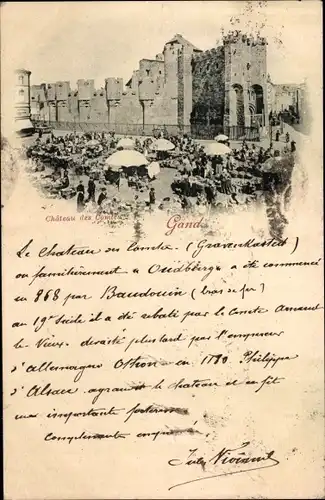 Château des Comtes
Gand
Le Chateau des Comtes (Gravenkasteel)
ou familièrement « Oudburg » a été commencé
en 868 par Baudouin (bras de fer)
au 19e siècle il a été rebati par le comte Arnaud
le Vieux. devasté plus tard par l'empereur
d'allemagne Othon - en 1180 Philippe
d'Alsace agrandit le chateau et en fit
une importante forteresse
complètement
Jules